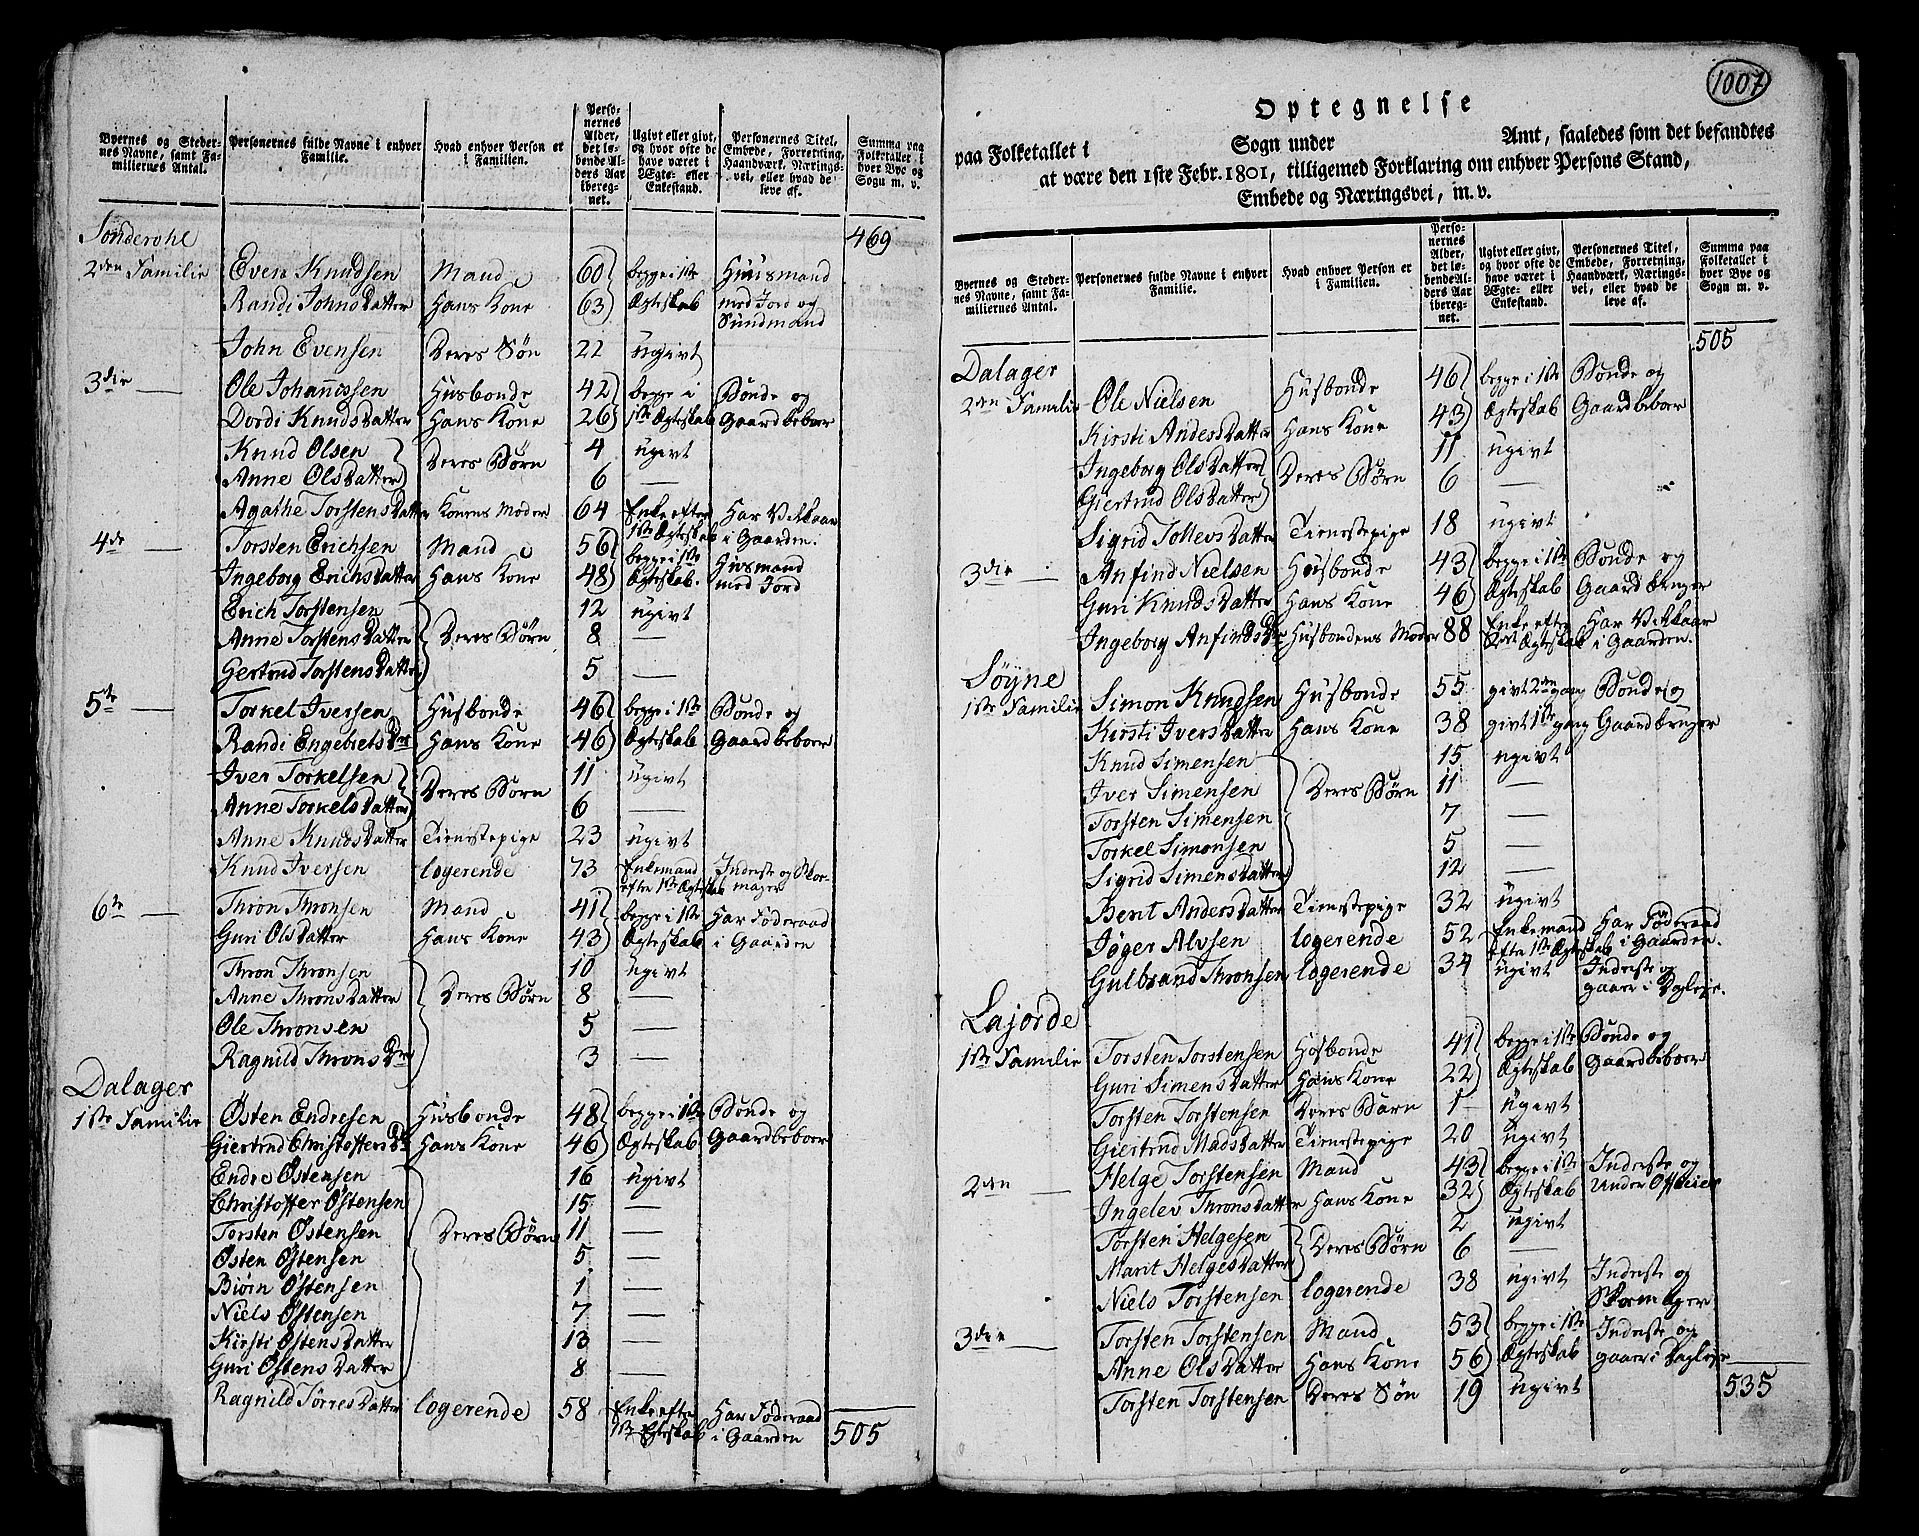 Byernes og Stedernes Navne, samt Familiernes Antal.
Personernes fulde Navne i enhver Familie.
Hvad enhver Person er i Familien.
Personernes Alder, det løbende Alders Aar iberegnet.
Ugivt eller givt, og hvor ofte de have været i Ægte- eller Enkestand.
Personernes Titel, Embede, Forretning, Haandværk, Næringsvei, eller hvad de leve af.
Summa paa Folketallet i hver Bye og Sogn m. v.
Sønderohl 469
2den Familie Even Knudsen Mand 60 begge i 1ste Huusmand
Randi Johns Datter Hans Kone 63 Ægteskab med Jord og
Sundmand
John Evensen Deres Søn 22 ugivt
3die — Ole Johannissen Husbonde 42 begge i Bonde og
Dordi Knuds Datter Hans Kone 26 1ste Ægteskab Gaardbeboer
Knud Olsen Deres Børn 4 ugivt
Anne Ols Datter 6 —
Agathe Torstens Datter Konens Moder 64 Enke efter Har Vilkaar
1ste Ægteskab i Gaarden.
4de — Torsten Erichsen Mand 56 begge i 1ste Husmand
Ingeborg Erichs Datter Hans Kone 48 Ægteskab. med Jord
Erich Torstensen 12 ugivt
Anne Torstens Datter Deres Børn 8 —
Gertrud Torstens Datter 5 —
5te — Torkel Iversen Husbonde 46 begge i 1ste Bonde og
Randi Engebrets Dtr Hans Kone 46 Ægteskab Gaardbeboer
Iver Torkelsen Deres Børn 11 ugivt
Anne Torkels Datter 6 —
Anne Knuds Datter Tienestepige 23 ugivt
Knud Iversen logerende 73 Enkemand Inderste og Skor-
efter 1ste Ægteskab mager
6te — Thron Thronsen Mand 41 begge i 1ste Har Føderaad
Guri Ols Datter Hans Kone 43 Ægteskab i Gaarden
Thron Thronsen 10 ugivt
Anne Throns Datter Deres Børn 8 —
Ole Thronsen 5 —
Ragnild Throns Dtr 3 —
Dalager
1ste Familie Østen Endresen Husbonde 48 begge i 1ste Bonde og
Giertrud Christoffers Dtr Hans Kone 46 Ægteskab Gaardbeboer
Endre Østensen 16 ugivt
Christoffer Østensen 15 —
Torsten Østensen Deres Børn 11 —
Østen Østensen 5 —
Biørn Østensen 1 —
Niels Østensen 7 —
Kirsti Østens Datter 13 —
Guri Østens Datter 8 —
Ragnild Tørres Datter logerende 58 Enke efter Har Føderaad
1ste Ægteskab i Gaarden 505
1007
Optegnelse
paa Folketallet i Sogn under Amt, saaledes som det befandtes
at være den 1ste Febr. 1801, tilligemed Forklaring om enhver Persons Stand,
Embede og Næringsvei, m. v.
Byernes og Stedernes Navne, samt Familiernes Antal.
Personernes fulde Navne i enhver Familie.
Hvad enhver Person er i Familien.
Personernes Alder, det løbende Alders Aar iberegnet.
Ugivt eller givt, og hvor ofte de have været i Ægte- eller Enkestand.
Personernes Titel, Embede, Forretning, Haandværk, Næringsvei, eller hvad de leve af.
Summa paa Folketallet i hver Bye og Sogn m. v.
505
Dalager
2den Familie Ole Nielsen Husbonde 46 begge i 1ste Bonde og
Kirsti Anders Datter Hans Kone 43 Ægteskab Gaardbeboer
Ingeborg Ols Datter Deres Børn 11 ugivt
Giertrud Ols Datter 6 —
Sigrid Tollevs Datter Tienestepige 18 ugivt
3die — Anfind Nielsen Husbonde 43 begge i 1ste Bonde og
Guri Knuds Datter Hans Kone 46 Ægteskab Gaard Bruger
Ingeborg Anfinds Dtr Husbondens Moder 88 Enke efter Har Vilkaar
Ægteskab i Gaarden.
Søyne
1ste Familie Simon Knudsen Husbonde 55 givt 2den gang Bonde og
Kirsti Ivers Datter Hans Kone 38 givt 1ste gang Gaardbruger
Knud Simensen 15 ugivt
Iver Simensen Deres Børn 11 —
Torsten Simensen 7 —
Torkel Simonsen 5 —
Sigrid Simens Datter 12 —
Berit Anders Datter Tienestepige 32 ugivt
Jøger Alvsen logerende 52 Enkemand Har Føderaad
efter 1ste Ægteskab i Gaarden.
Gulbrand Thronsen logerende 34 ugivt Inderste og
gaaer i Dagleje.
Lajorde
1ste Familie Torsten Torstensen Hosbonde 41 begge i 1ste Bonde og
Guri Simens Datter Hans Kone 22 Ægteskab Gaardbeboer
Torsten Torstensen Deres Barn 1 ugivt
Giertrud Mads Datter Tienestepige 20 ugivt
2den — Helge Torstensen Mand 43 begge i 1ste Inderste og
Ingelev Throns Datter Hans Kone 32 Ægteskab Under Officier
Torsten Helgesen Deres Børn 2 ugivt
Marit Helges Datter 6 —
Niels Torstensen logerende 38 ugivt Inderste og
Skormager
3die — Torsten Torstensen Mand 53 begge i 1ste Inderste og
Anne Ols Datter Hans Kone 56 Ægteskab gaaer i Dagleje
Torsten Torstensen Deres Søn 19 ugivt 535